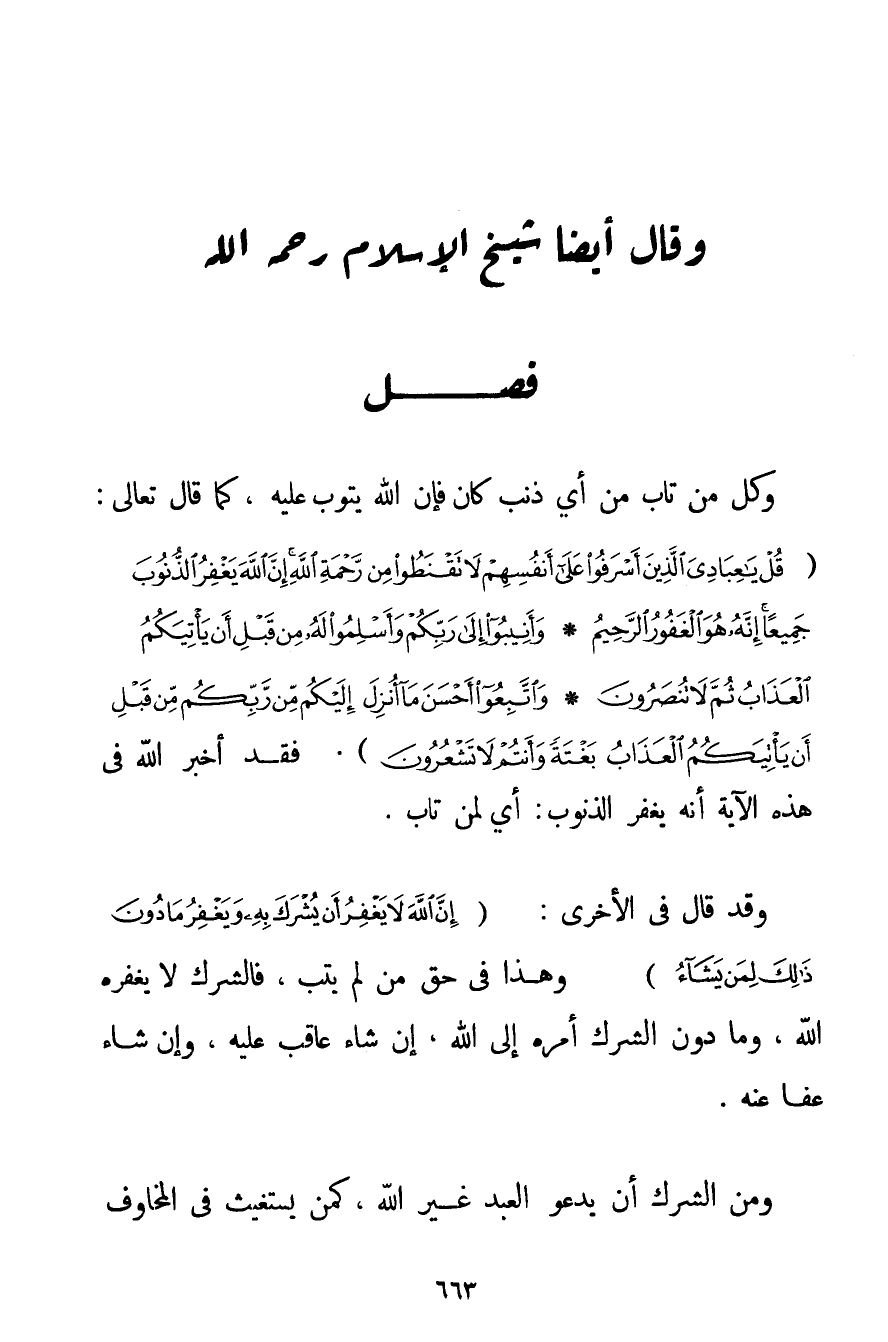 وقال أيضا شيخ الإسلام رحمه الله
فصل
وكل من تاب من أي ذنب كان فإن الله يتوب عليه ، كما قال تعالى :
( قُلْ يَٰعِبَادِىَ ٱلَّذِينَ أَسْرَفُوا۟ عَلَىٰٓ أَنفُسِهِمْ لَا تَقْنَطُوا۟ مِن رَّحْمَةِ ٱللَّهِ ۚ إِنَّ ٱللَّهَ يَغْفِرُ ٱلذُّنُوبَ
جَمِيعًا ۚ إِنَّهُۥ هُوَ ٱلْغَفُورُ ٱلرَّحِيمُ * وَأَنِيبُوٓا۟ إِلَىٰ رَبِّكُمْ وَأَسْلِمُوا۟ لَهُۥ مِن قَبْلِ أَن يَأْتِيَكُمُ
ٱلْعَذَابُ ثُمَّ لَا تُنصَرُونَ * وَٱتَّبِعُوٓا۟ أَحْسَنَ مَآ أُنزِلَ إِلَيْكُم مِّن رَّبِّكُم مِّن قَبْلِ
أَن يَأْتِيَكُمُ ٱلْعَذَابُ بَغْتَةً وَأَنتُمْ لَا تَشْعُرُونَ ) . فقد أخبر الله فى
هذه الآية أنه يغفر الذنوب : أي لمن تاب .
وقد قال فى الأخرى : ( إِنَّ ٱللَّهَ لَا يَغْفِرُ أَن يُشْرَكَ بِهِۦ وَيَغْفِرُ مَا دُونَ
ذَٰلِكَ لِمَن يَشَآءُ ) وهذا فى حق من لم يتب ، فالشرك لا يغفره
الله ، وما دون الشرك أمره إلى الله ، إن شاء عاقب عليه ، وإن شاء
عفا عنه .
ومن الشرك أن يدعو العبد غير الله ، كمن يستغيث فى المخاوف
٦٦٣